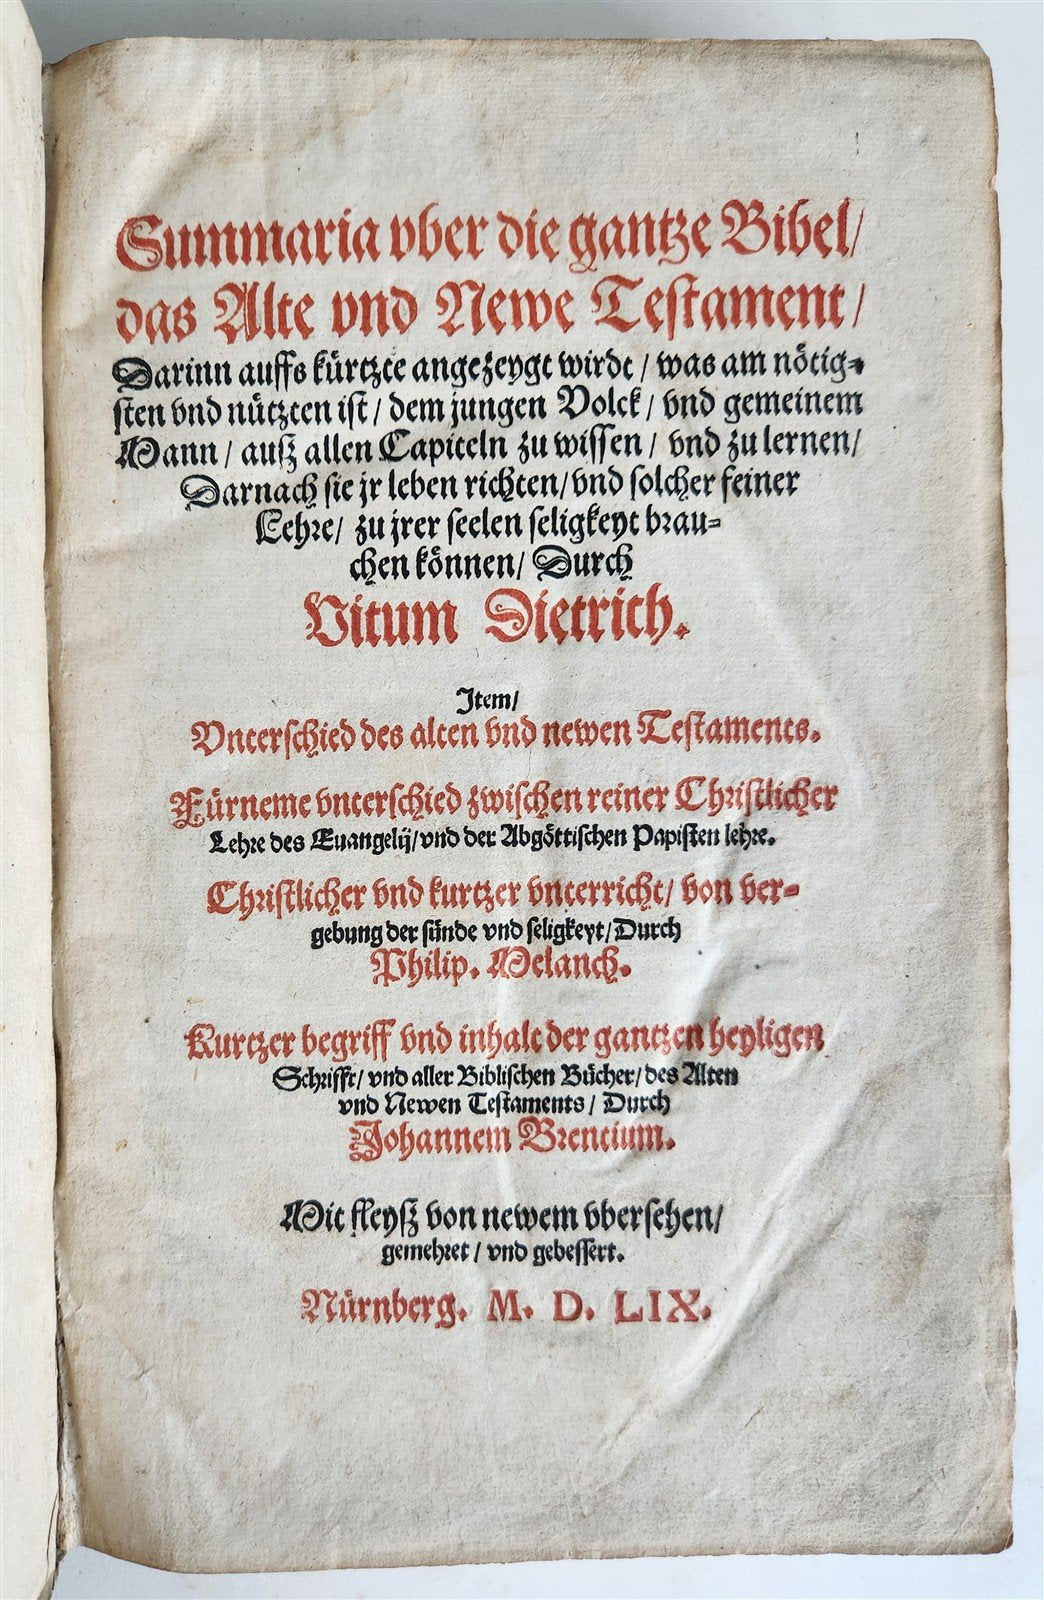 Summaria vber die gantze Bibel/
das Alte vnd Newe Testament/
Darinn auffs kürtzte angezeygt wirdt/ was am nötig-
sten vnd nützten ist/ dem jungen Volck/ vnd gemeinem
Mann/ ausz allen Capiteln zu wissen/ vnd zu lernen/
Darnach sie jr leben richten/ vnd solcher feiner
Lehre/ zu jrer seelen seligkeyt brau-
chen können/ Durch
Vitum Dietrich.
Item/
Vnterschied des alten vnd newen Testaments.
Fürneme vnterschied zwischen reiner Christlicher
Lehre des Euangelij/ vnd der Abgöttischen Papisten lehre.
Christlicher vnd kurtzer vnterricht/ von ver-
gebung der sünde vnd seligkeyt/ Durch
Philip. Melanch.
Kurtzer begriff vnd inhalt der gantzen heyligen
Schrifft/ vnd aller Biblischen Bücher/ des Alten
vnd Newen Testaments/ Durch
Johannem Brentium.
Mit fleysz von newem vbersehen/
gemehret/ vnd gebessert.
Nürnberg. M. D. LIX.